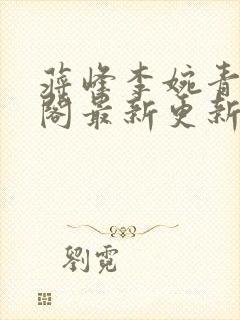 蒋峰李婉青
阁最新更新
劉霓